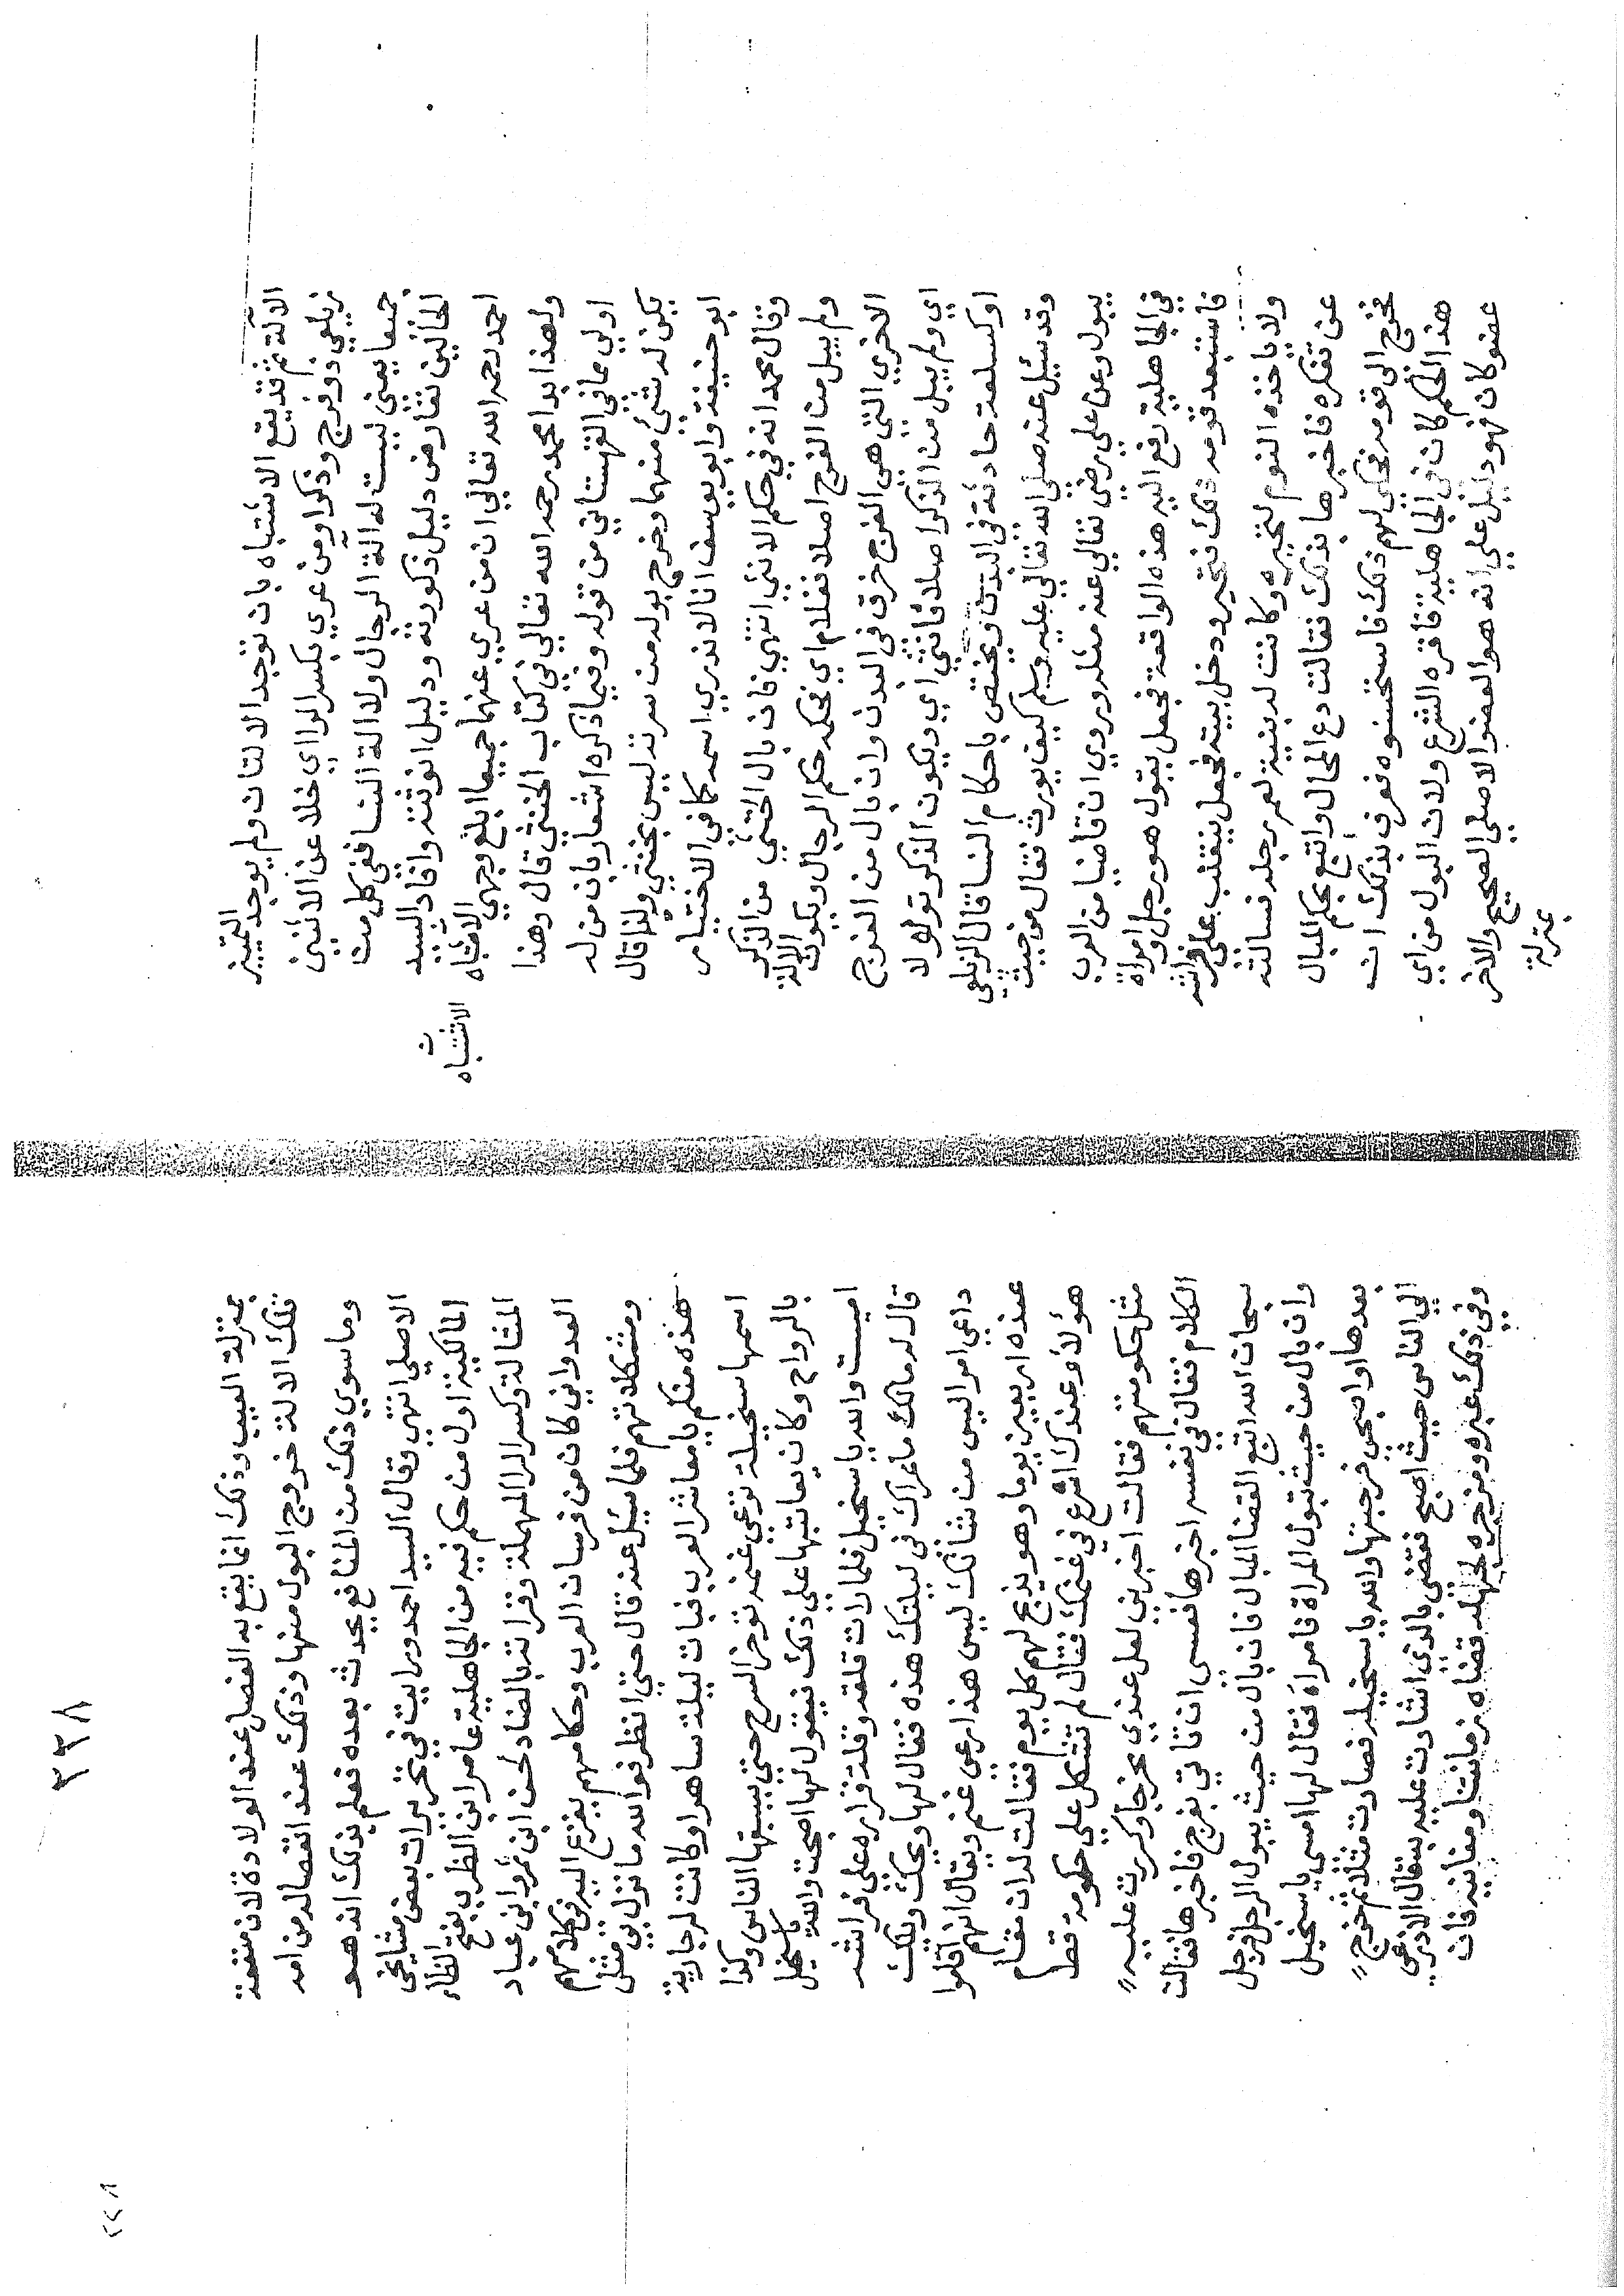 الآلة ثم قد يقع الاشتباه بان توجد الالتان ولم يوجد التمييز
زيلعي ذو فرج وذكر او من عري بكسر الرا اي خلا عن الاثنين
جميعا يعني ليست له آلة الرجال ولا آلة النسا ففي كل من
الحالين تعارض دليل ذكورته ودليل انوثته وافاد السيد
احمد رحمه الله تعالي ان من عري عنهما جميعا ابلغ وجهي الاشتباه
ن
الاشتباه
ولهذا بدا محمد رحمه الله تعالي في كتاب الخنثي قال وهذا
اولي مما في القهستاني من قوله وفيما ذكره اشعار بان من له
يكن له شئ منهما وخرج بوله من سرته ليس بخنثي ولذا قال
ابو حنيفة وابو يوسف انا لا ندري اسمه كما في الاختيار
وقال محمد انه في حكم الانثي انتهي فان بال الخنثي من الذكر
ولم يبل من الفرج اصلا فغلام اي فحكمه حكم الرجال ويكون الآلة
الاخري التي هي الفرج خرق في البدن وان بال من الفرج
اي ولم يبل من الذكر اصلا فانثي اي ويكون الذكر تولولا
او كسلعة حادثة في البدن ويختص باحكام النسا قال الزيلعي
وقد سئل عنه صلي الله تعالي عليه وسلم كيف يورث فقال من حيث
يبول وعن علي رضي تعالي عنه مثله وروي ان قاضيا من العرب
في الجاهلية رفع اليه هذه الواقعة فجعل يقول هو رجل وامراة
فاستبعد قومه ذلك فتحير ودخل بيته فجعل يتقلب علي فراشه
ولا ياخذه النوم لتحيره وكانت له بنية تغمر رجله فسالته
عن تفكره فاخبرها بذلك فقالت دع المحال واتبع بحكم المبال
فخرج الي قومه فحكي لهم ذلك فاستحسنوه فعرف بذلك ان
هذا الحكم كان في الجاهلية فاقره الشرع ولان البول من اي
عضو كان فهو دليل علي انه هو العضو الاصلي الصحيح والاخر
بمنزلة
٢٢٨
بمنزلة العيب وذلك انما يقع به الفصل عند الولادة لان منفعة
تلك الالة خروج البول منها وذلك عند انفصاله من امه
وما سوي ذلك من المنافع يحدث بعده فعلم بذلك انه هو
الاصلي انتهي وقال السيد احمد ورايت في تحريرات بعض مشايخي
المالكية اول من حكم فيه من الجاهلية عامر ابن الظرب بفتح الظاء
المشالة وكسر الرا المهملة وقراته بالضاد لحن ابن عمرو ابن عباد
العدواني كان من فرسان العرب وحكامهم يفزع اليه في كلامهم
ومشكلاتهم فلما سئل عنه قال حتي انظر فوالله ما نزل بي مثل
هذه منكم يا معاشر العرب فبات ليلة ساهرا وكانت له جارية
اسمها سخيلة ترعي غنمه توخر السرح حتي يسبقها الناس وكذا
بالرواح وكان يعاتبها علي ذلك فيقول لها اصبحت والله يا سخيل
امسيت والله يا سخيل فلما رات قلقه وقلة قراره علي فراشه
قال له مالك ما عراك في ليلتك هذه فقال لها ويحك ويلك
داعي امر اليس من شانك ليس هذا رعي غنم ويقال انهم اقاموا
عنده اربعين يوما وهو يذبح لهم كل يوم فقالت له ان مقام
هؤلاء عندك اشرع في غنمك فقال لم تشكل علي حكومة قط
مثل حكومتهم فقالت اخبرني لعل عندي مخرجا وكررت عليه
الكلام فقال في نفسه اخبرها فعسي ان تاتي بفرج فاخبرها فقالت
سبحان الله اتبع القضا المبال فان بال من حيث يبول الرجل فرجل
وان بال من حيث تبول المراة فامراة فقال لها امسي يا سخيل
بعدها او اصبحي فرجتها والله يا سخيلة فصارت مثلا ثم خرج
الي الناس حيث اصبح فقضي بالذي اشارت عليه يقال الاذرعي
وفي ذلك عبرة ومزجرة لجهلة قضاة زماننا ومفاتيه فان